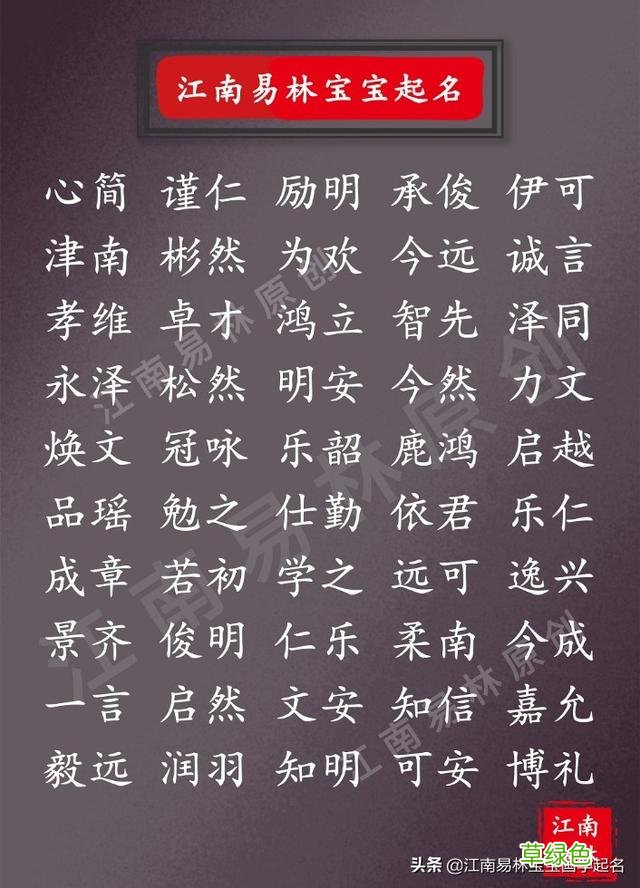 江南易林宝宝起名
心简 谨仁 励明 承俊 伊可
津南 彬然 为欢 今远 诚言
孝维 卓才 鸿立 智先 泽同
永泽 松然 明安 今然 力文
焕文 冠咏 乐韶 鹿鸿 启越
品瑶 勉之 仕勤 依君 乐仁
成章 若初 学之 远可 逸兴
景齐 俊明 仁乐 柔南 今成
一言 启然 文安 知信 嘉允
毅远 润羽 知明 可安 博礼
江南易林原创
江南易林原创
江南易林原创
江南
草绿色
头条 @江南易林宝宝国学起名